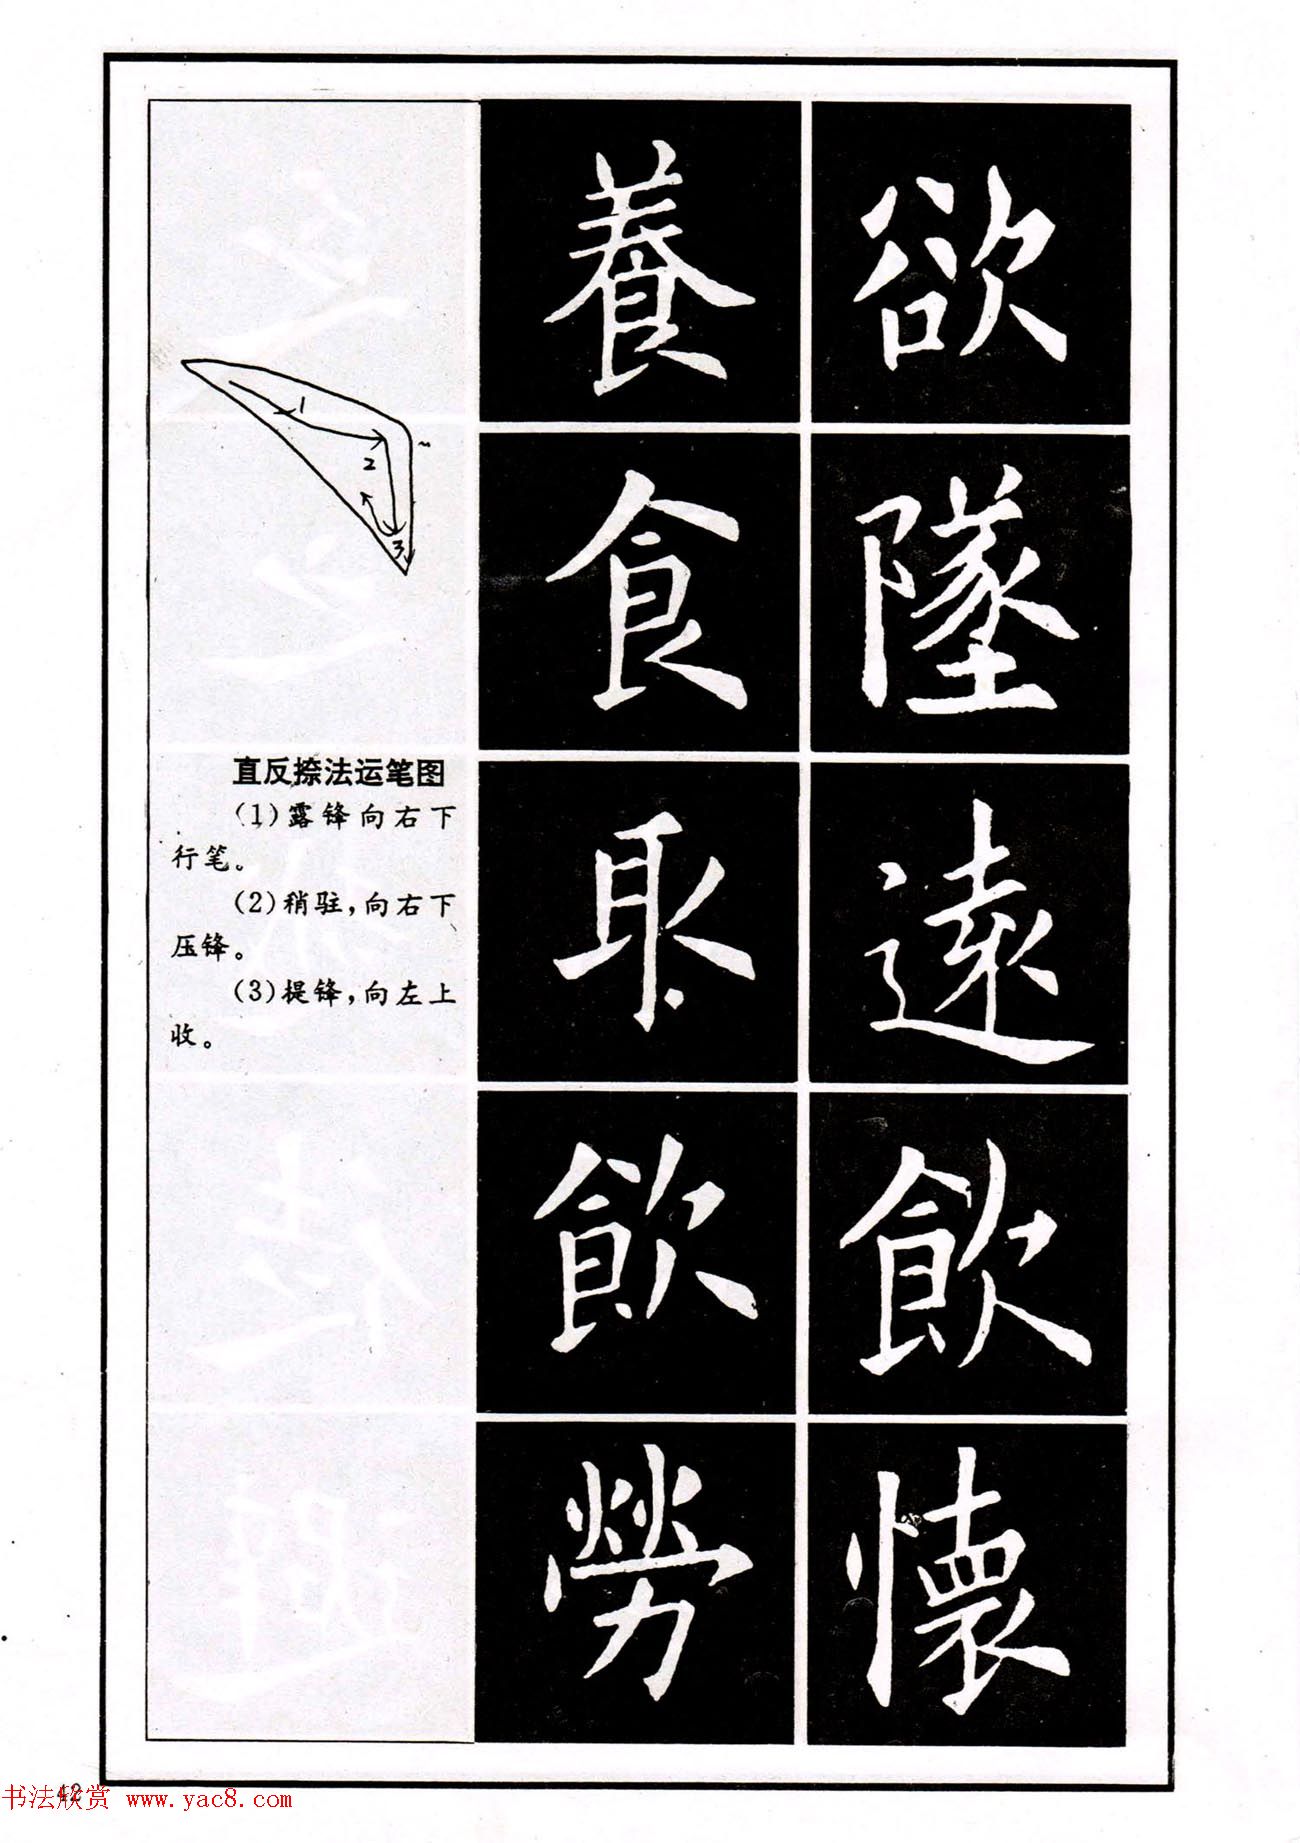 欲
墜
遠
飲
懷
養
食
取
飲
勞
1
2
3
直反捺法运笔图
(1)露锋向右下
行笔。
(2)稍驻，向右下
压锋。
(3)提锋，向左上
收。
42
书法欣赏 www.yac8.com